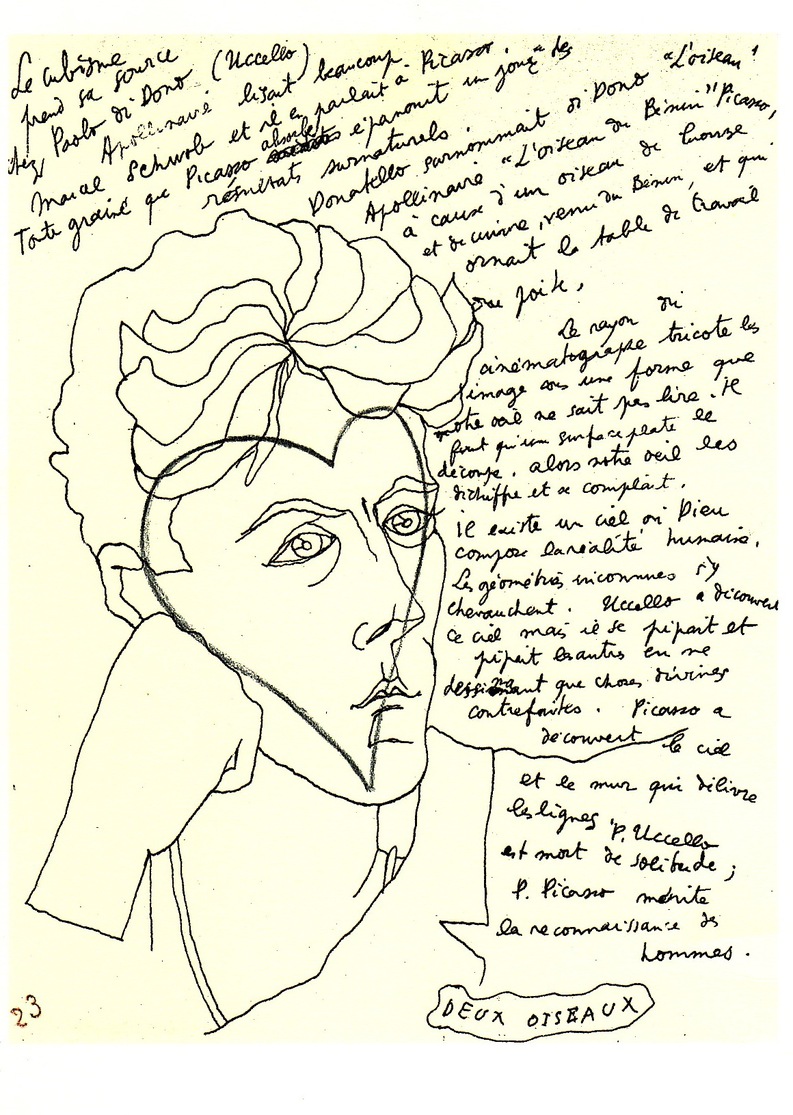 Le cubisme
prend sa source
chez Paolo di Dono (Uccello)
Apollinaire lisait beaucoup
Marcel Schwob et il en parlait à Picasso.
Toute graine que Picasso absorbe épanouit un jour "des
résultats surnaturels.
Donatello surnommait di Dono "L'oiseau"
Apollinaire "L'oiseau du Bénin" Picasso,
à cause d'un oiseau de bronze
et de cuivre, venu du Bénin, et qui
ornait la table de travail
du poète.
Le rayon du
cinématographe tricote les
image sous une forme que
notre œil ne sait pas lire. Il
faut qu'une surface plate le
découpe. alors notre œil les
déchiffre et se complait.
Il existe un ciel où Dieu
compose la réalité humaine.
Les géométries inconnues s'y
chevauchent. Uccello a découvert
ce ciel mais il se pipait et
pipait les autres en ne
dessinant que choses divines
contrefaites. Picasso a
découvert le ciel
et le mur qui délivre
les lignes P. Uccello
est mort de solitude ;
P. Picasso mérite
la reconnaissance des
hommes.
DEUX OISEAUX
23